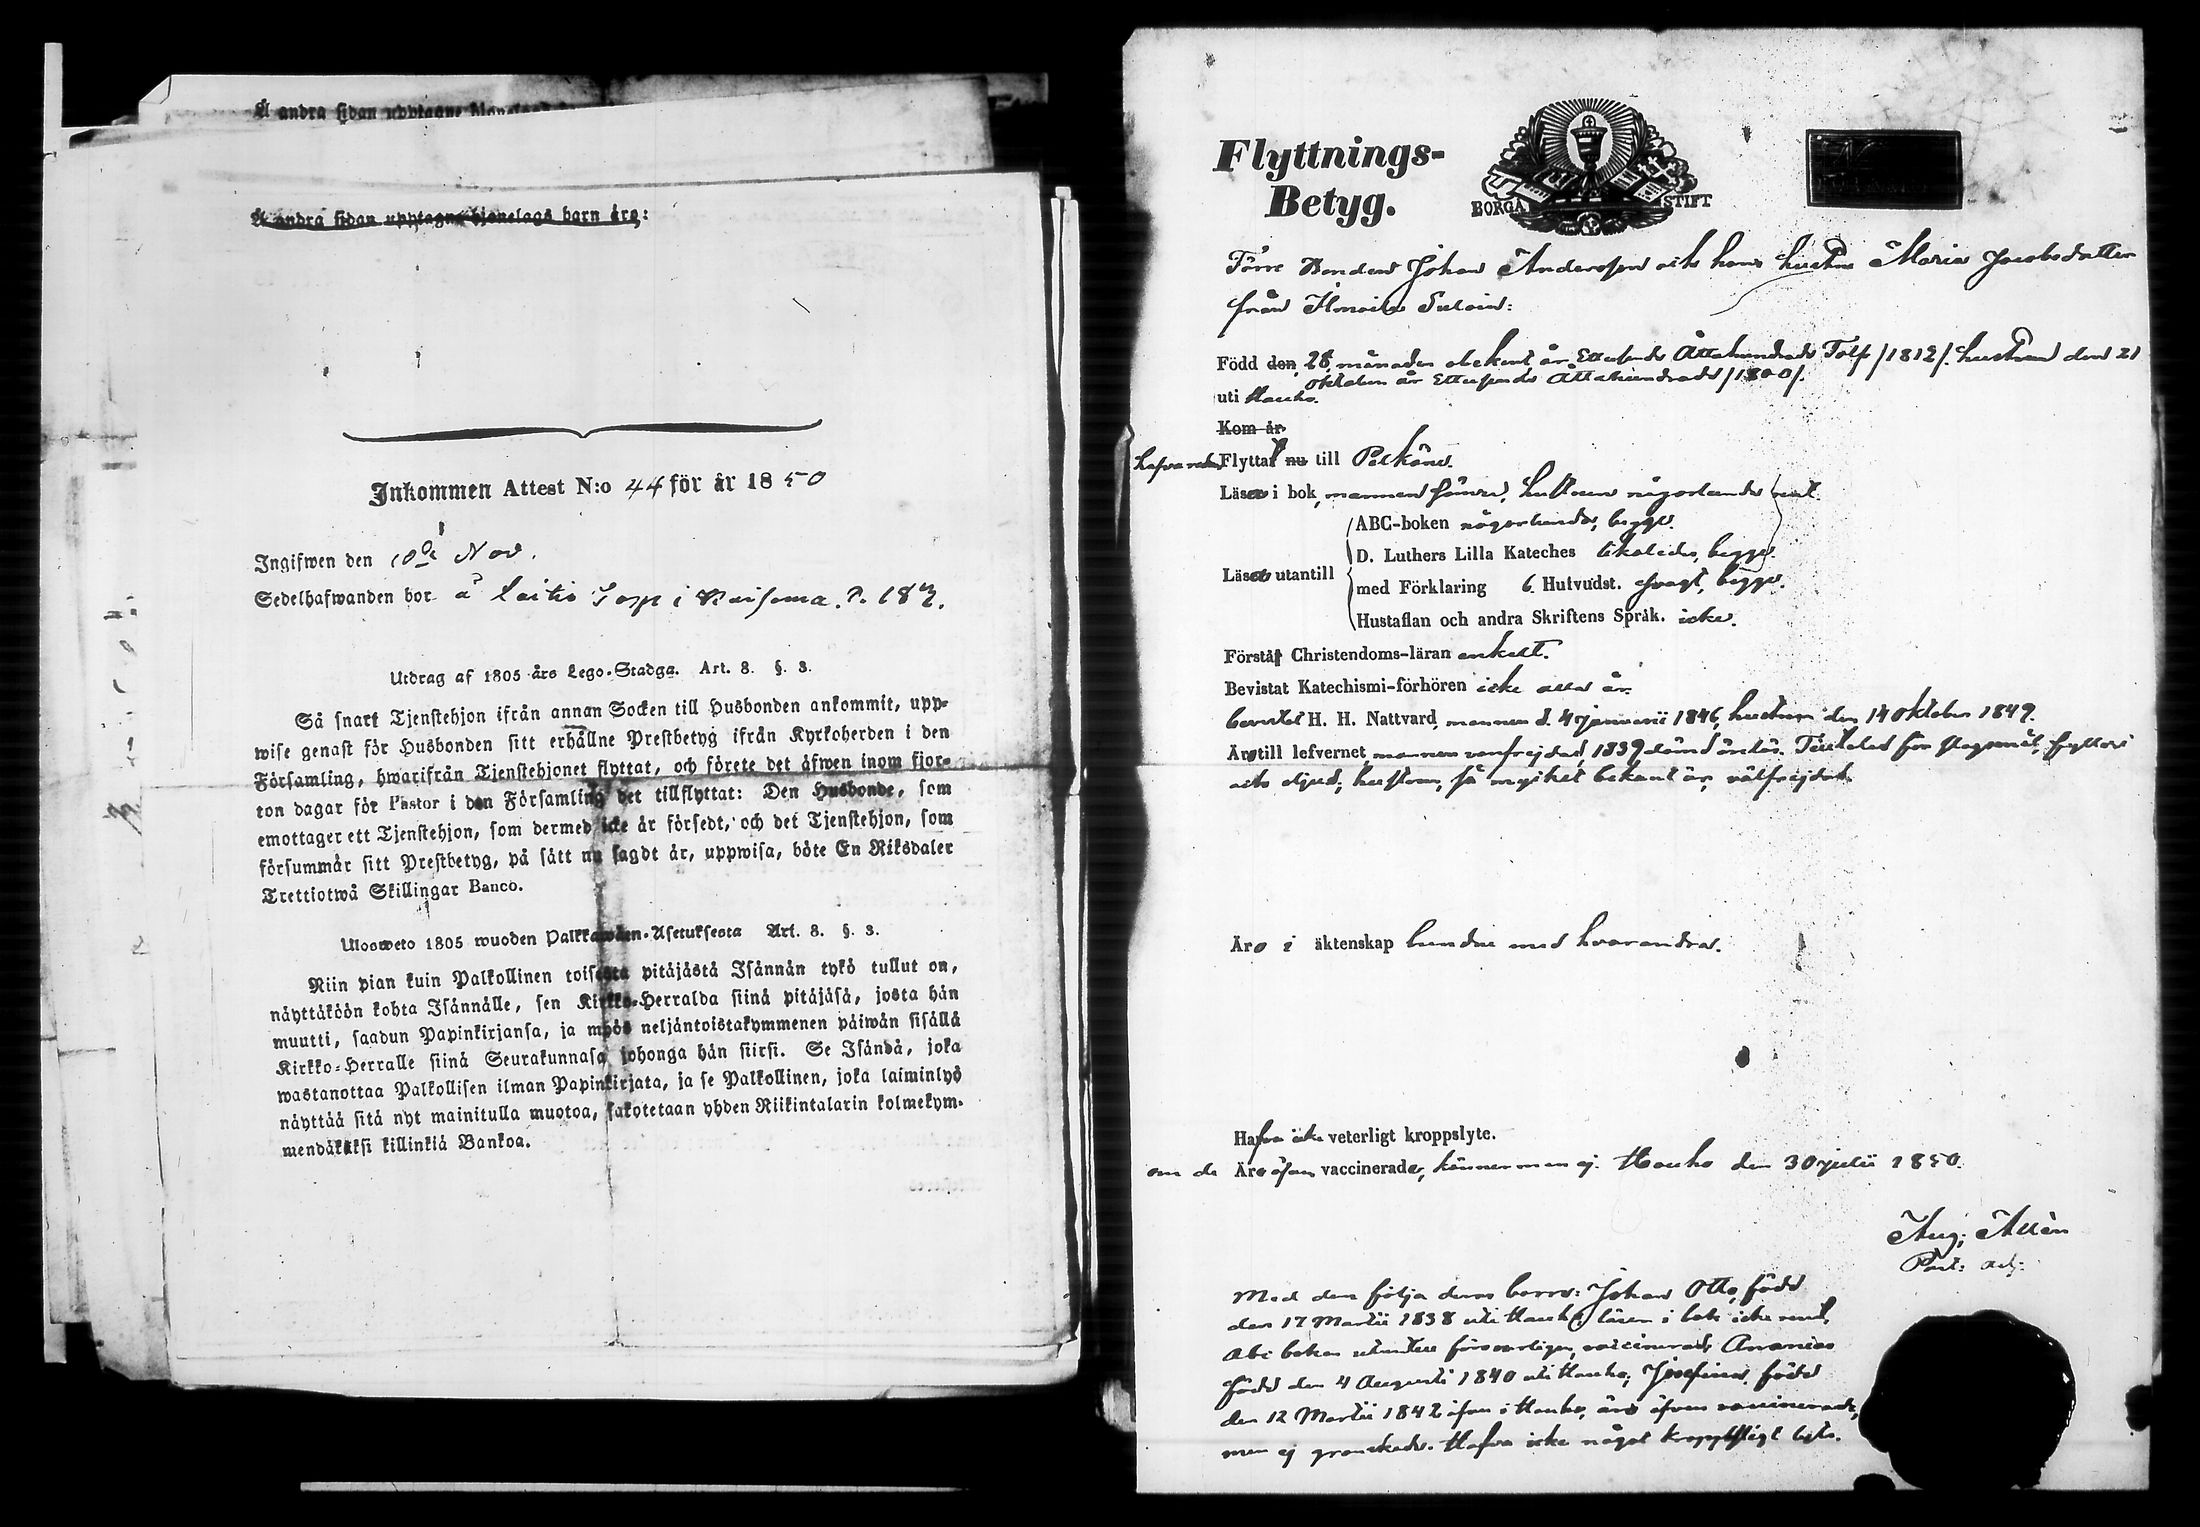 Å andra sidan upptagne
Å andra sidan upptagne hjonelags barn äro:
Inkommen Attest N:o 44 för år 1850
Ingifwen den 10de Nov.
Sedelhafwanden bor å Laitis Torp i P. 187.
Utdrag af 1805 års Lego-Stadga. Art. 8. §. 3.
Så snart Tjenstehjon ifrån annan Socken till Husbonden ankommit, upp-
wise genast för Husbonden sitt erhållne Prestbetyg ifrån Kyrkoherden i den
Församling, hwarifrån Tjenstehjonet flyttat, och förete det äfwen inom fjor-
ton dagar för Pastor i den Församling det tillflyttat: Den Husbonde, som
emottager ett Tjenstehjon, som dermed icke är försedt, och det Tjenstehjon, som
försummar sitt Prestbetyg, på sätt nu sagdt är, uppwisa, böte En Riksdaler
Trettiotwå Skillingar Banco.
Ulosweto 1805 wuoden Palkkawäen-Asetuksesta Art. 8. §. 3.
Niin pian kuin Palkollinen toisesta pitäjästä Isännän tykö tullut on,
näyttäköön kohta Isännälle, sen Kirkko-Herralda siinä pitäjäsä, josta hän
muutti, saadun Papinkirjansa, ja myös neljäntoistakymmenen päiwän sisällä
Kirkko-Herralle siinä Seurakunnasa johonga hän siirsi. Se Isändä, joka
wastanottaa Palkollisen ilman Papinkirjata, ja se Palkollinen, joka laiminlyö
näyttää sitä nyt mainitulla muotoa, sakotetaan yhden Riikintalarin kolmekym-
mendäkaksi killinkiä Bankoa.
Flyttnings-
Betyg.
BORGÅ STIFT
Förre Bonden Johan Andersson och hans hustru Maria Jacobsdotter
från Ilmoila Sutois:
Född den 28 månaden obekant år Ettusende Åttahundrade Tolf /1812/. hustrun den 21
oktober år Ettusende Åttahundrade /1800/.
uti Hauho.
Kom år
hafva redan Flyttat nu till Pelkäne.
Läsa i bok, mannen hustrun någorlunda rent.
Läsa utantill
ABC-boken någorlunda, begge.
D. Luthers Lilla Kateches likaledes, begge
med Förklaring 6 Hufvudst. svagt, begge.
Hustaflan och andra Skriftens Språk. icke.
Förstå Christendoms-läran enkelt.
Bevistat Katechismi-förhören icke alla år.
H. H. Nattvard, mannen d. 4 januarii 1846, hustrun den 14 oktober 1849.
Äro till lefvernet, mannen vanfrejdad, 1839 dömd Tilltalad för slagsmål, fylleri
och hustrun, så mycket bekant är, välfrejdad.
Äro i äktenskap bundne med hvarandra.
Hafva icke veterligt kroppslyte.
om de Äro äfven vaccinerade, känner man ej. Hauho den 30 julii 1850.
Aug. Allén
Past: adj:
Med dem följa deras barn: Johan Otto, född
den 17 Martii 1838 uti Hauho, läser i bok icke rent,
Abc boken utantill försvarligen, vaccinerad; Ananias
född den 4 Augusti 1840 uti Hauho; Josefina, född
den 12 Martii 1842 äfven i Hauho, äro äfven vaccinerade,
men ej granskade. Hafva icke något kroppsligt lyte.